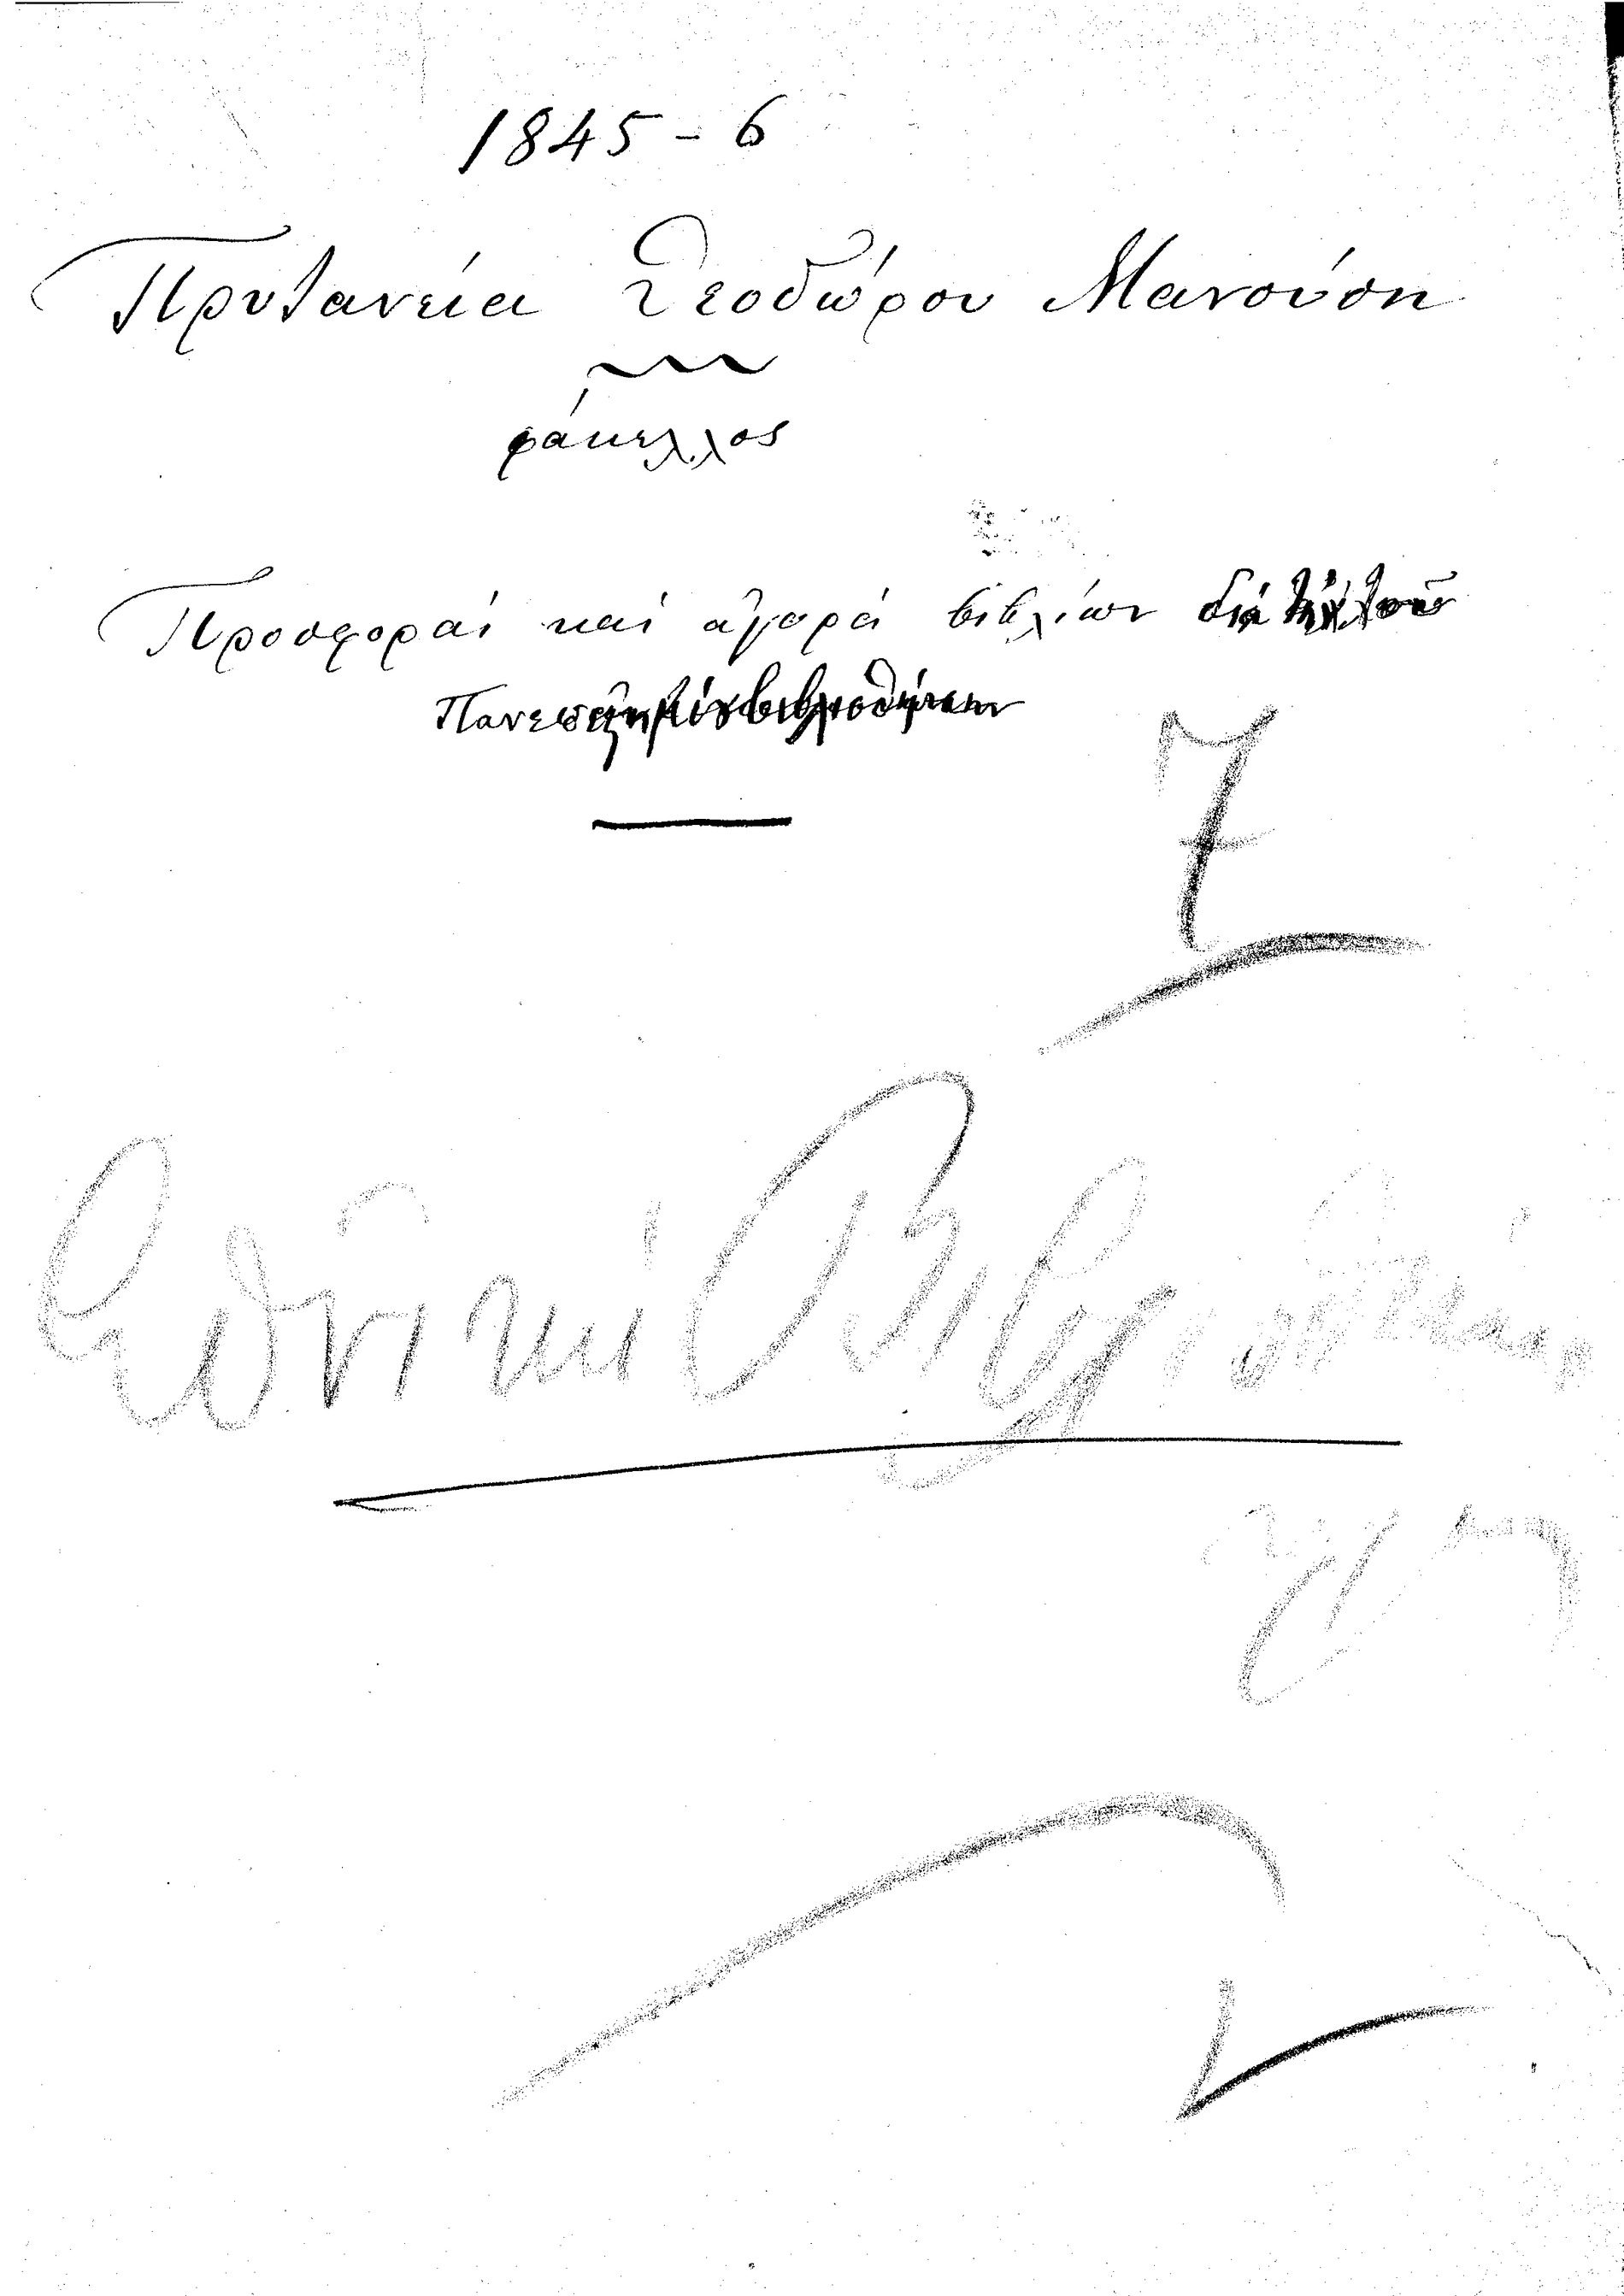 1845 - 6
Πρυτανεία Θεοδώρου Μανούση
φάκελλος
Προσφοραί καί ἀγορά βιβλίων διά τήν τοῦ
Πανεπιστημίου βιβλιοθήκην
7
Ἐθνική Βιβλιοθήκη